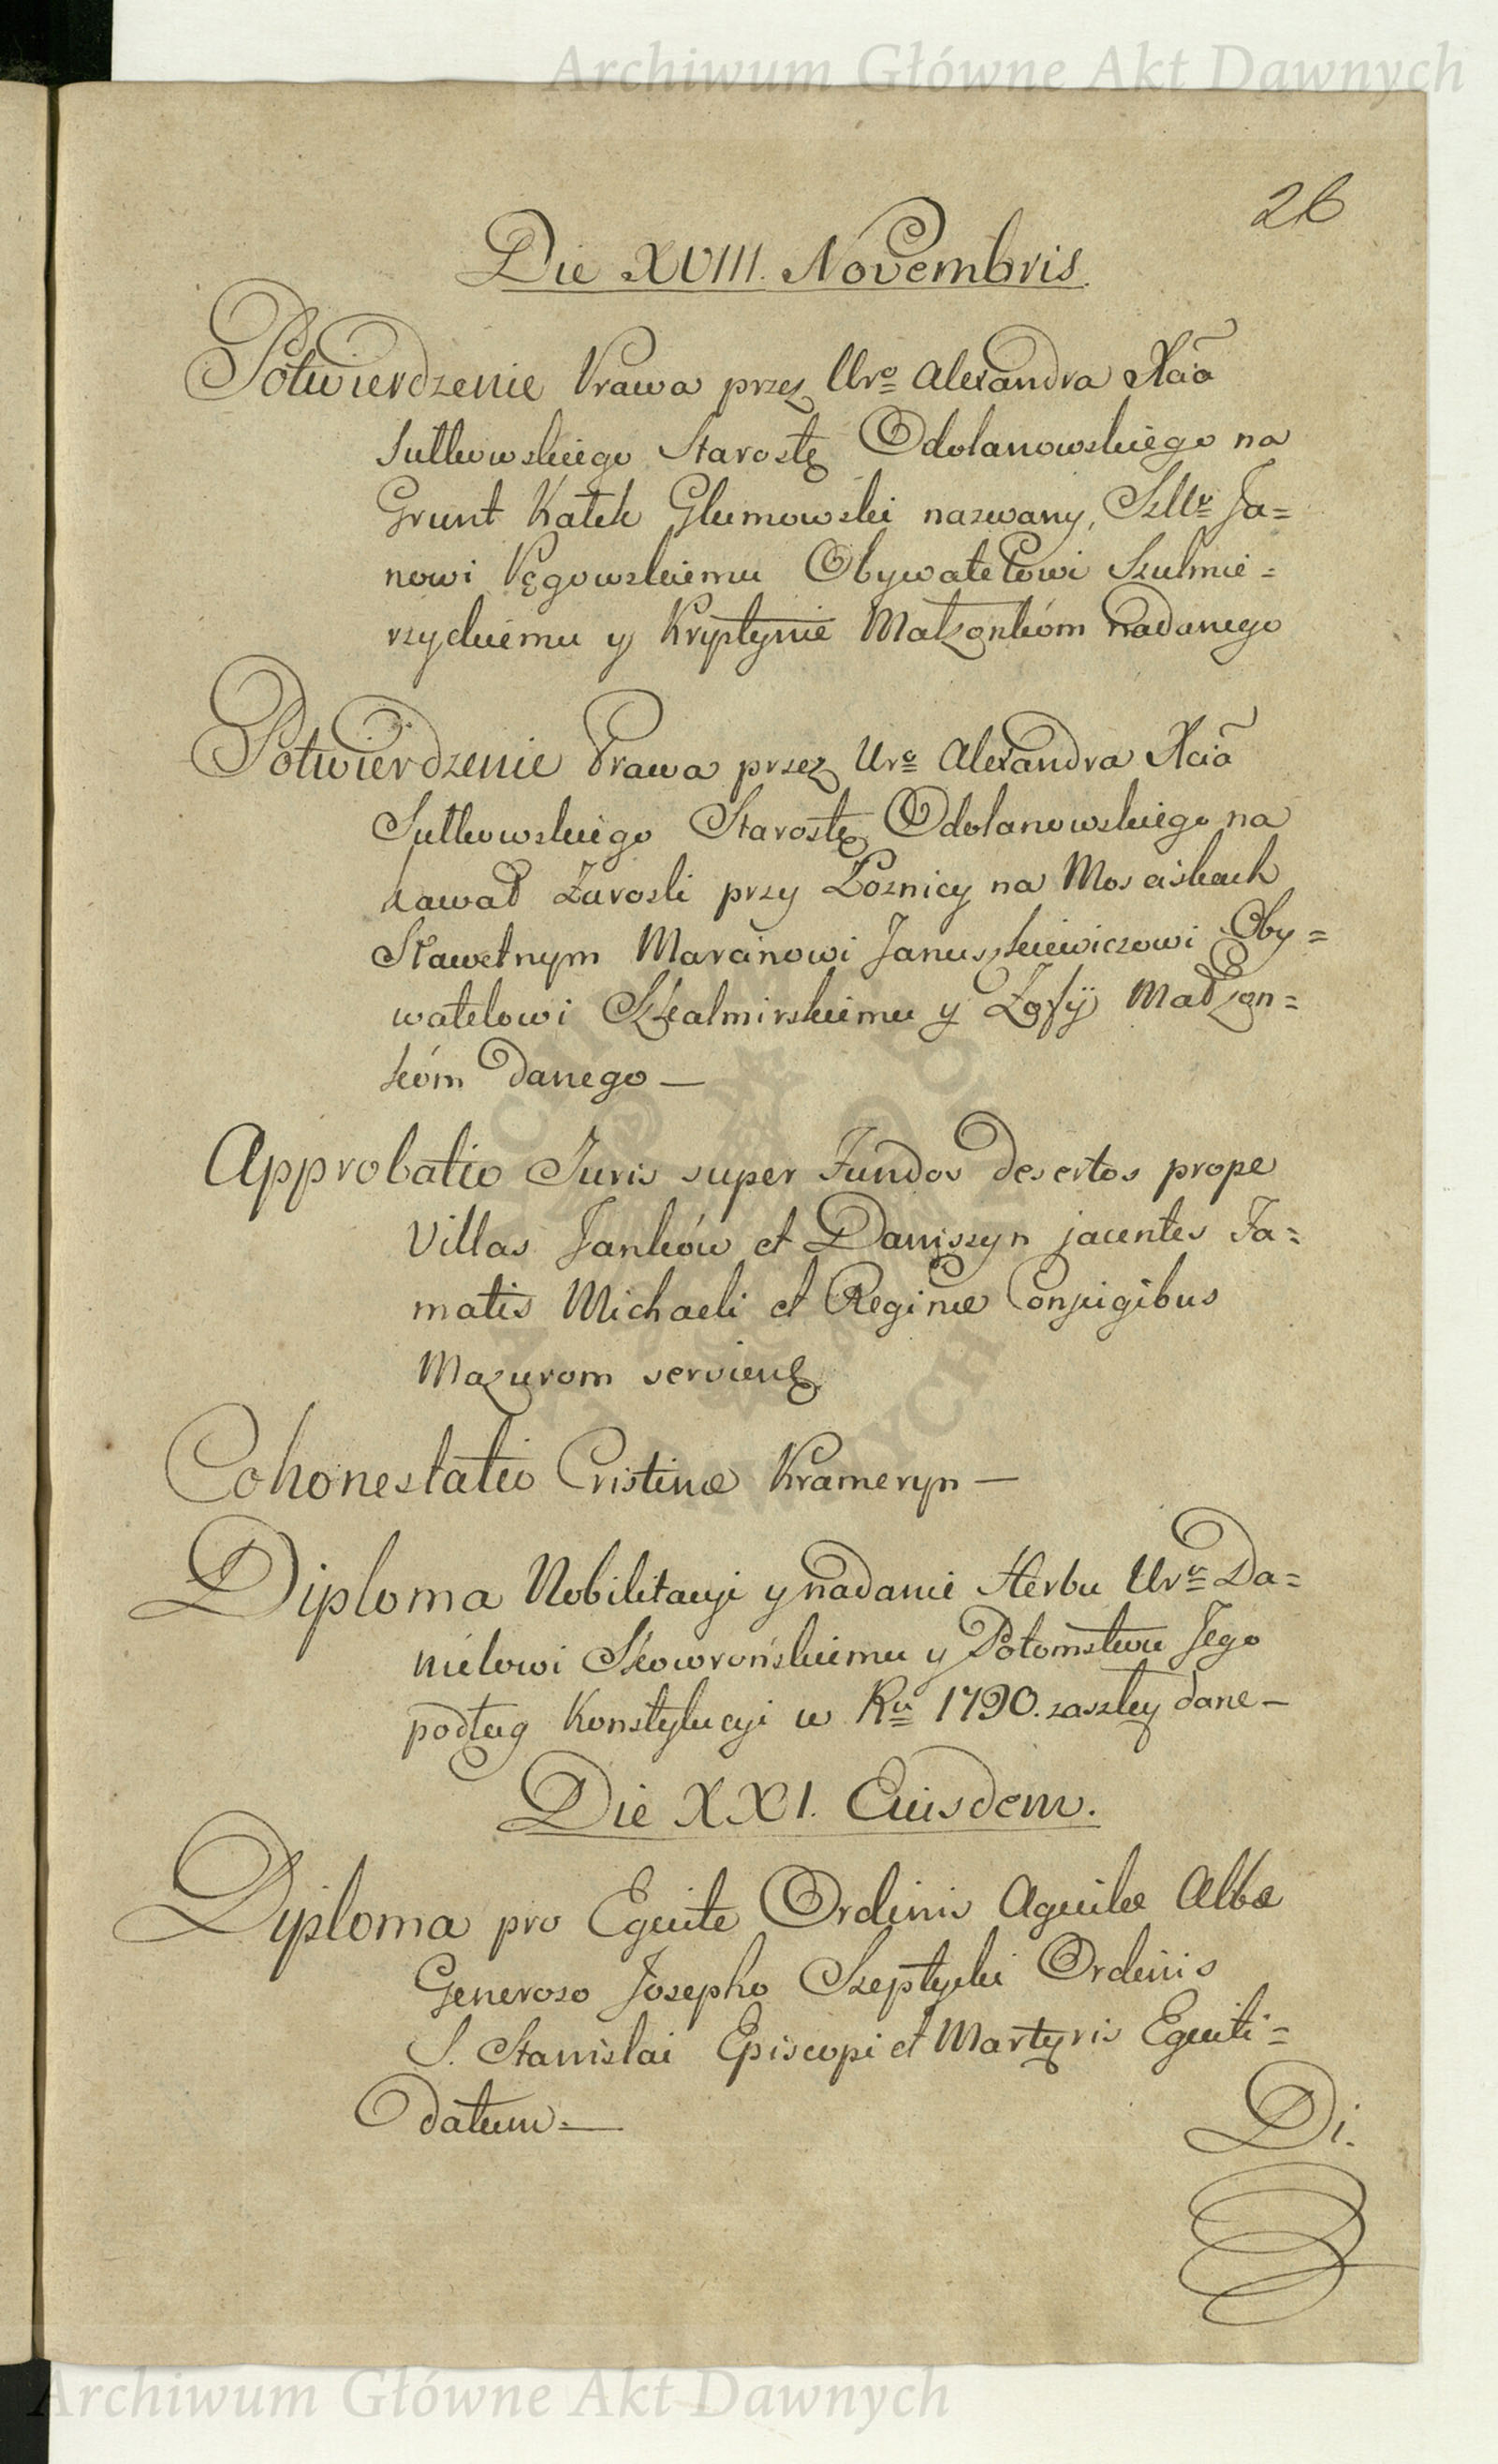 Archiwum Główne Akt Dawnych
26
Die XVIII. Novembris.
Potwierdzenie Prawa przez Uro Alexandra Xcia
Sułkowskiego Starostę Odolanowskiego na
Grunt Kątek Glumowski nazwany, Sllu Ja=
nowi Pęgowskiemu Obywatelowi Szulmie=
rzyckiemu y Krystynie Małżonkóm nadanego
Potwierdzenie Prawa przez Uro Alexandra Xcia
Sułkowskiego Starostę Odolanowskiego na
kawał Zarośli przy Łoznicy na Mosciskach
Sławetnym Marcinowi Januszkiewiczowi Oby=
watelowi Szkalmirskiemu y Zofÿ Małżon=
kóm danego —
Approbatio Juris super Fundos desertos prope
Villas Janków et Daniszyn jacentes Fa=
matis Michaeli et Reginæ Conjugibus
Mazurom servien
Cohonestatio Cristinæ Krameryn —
Diploma Nobilitacyi y nadanie Herbu Uru Da=
nielowi Skowrońskiemu y Potomstwu Jego
podług Konstytucyi w Ru 1790. zaszłey dane —
Die XXI. Eiusdem.
Dyploma pro Equite Ordinis Aquilæ Albæ
Generoso Josepho Szeptycki Ordinis
S. Stanislai Episcopi et Martyris Equiti=
datum —
Di.
Archiwum Główne Akt Dawnych